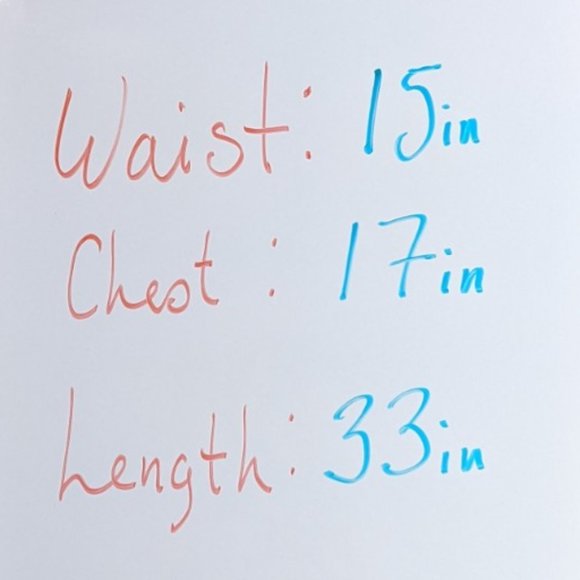 Waist: 15in
Chest: 17in
Length: 33in